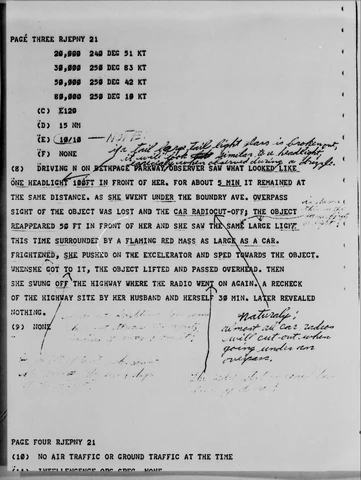 PAGE THREE RJEPNY 21
20,000 240 DEG 51 KT
30,000 250 DEG 83 KT
50,000 250 DEG 42 KT
80,000 250 DEG 10 KT
(C) E120
(D) 15 NM
(E) 10/10
(F) NONE
NOTE:
If a tail light glass is broken out,
it will look similar to a headlight
especially when observed during a drizzle.
(8) DRIVING N ON BETHPAGE PARKWAY OBSERVER SAW WHAT LOOKED LIKE
ONE HEADLIGHT 100FT IN FRONT OF HER. FOR ABOUT 5 MIN IT REMAINED AT
THE SAME DISTANCE. AS SHE WWENT UNDER THE BOUNDRY AVE. OVERPASS
SIGHT OF THE OBJECT WAS LOST AND THE CAR RADIOCUT-OFF; THE OBJECT
REAPPEARED 50 FT IN FRONT OF HER AND SHE SAW THE SAME LARGE LIGHT
THIS TIME SURROUNDED BY A FLAMING RED MASS AS LARGE AS A CAR.
FRIGHTENED, SHE PUSHED ON THE EXCELERATOR AND SPED TOWARDS THE OBJECT.
WHENSHE GOT TO IT, THE OBJECT LIFTED AND PASSED OVERHEAD. THEN
SHE SWUNG OFF THE HIGHWAY WHERE THE RADIO WENT ON AGAIN. A RECHECK
OF THE HIGHWAY SITE BY HER HUSBAND AND HERSELF 30 MIN. LATER REVEALED
NOTHING.
(9) NONE
Naturally!
almost all car radios
will cut out when
going under an
overpass.
PAGE FOUR RJEPNY 21
(10) NO AIR TRAFFIC OR GROUND TRAFFIC AT THE TIME
(11) INTELLENGENCE OPS SPEC. NONE